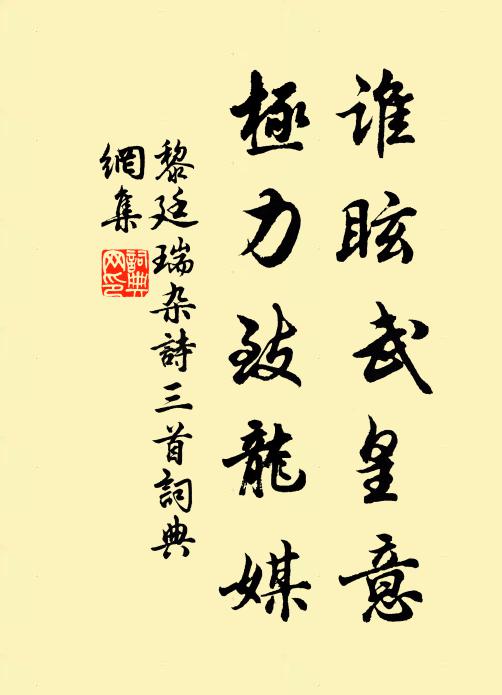 誰眩武皇意
極力致龍媒
黎廷瑞杂詩三首詞典
網集
詞典
网印